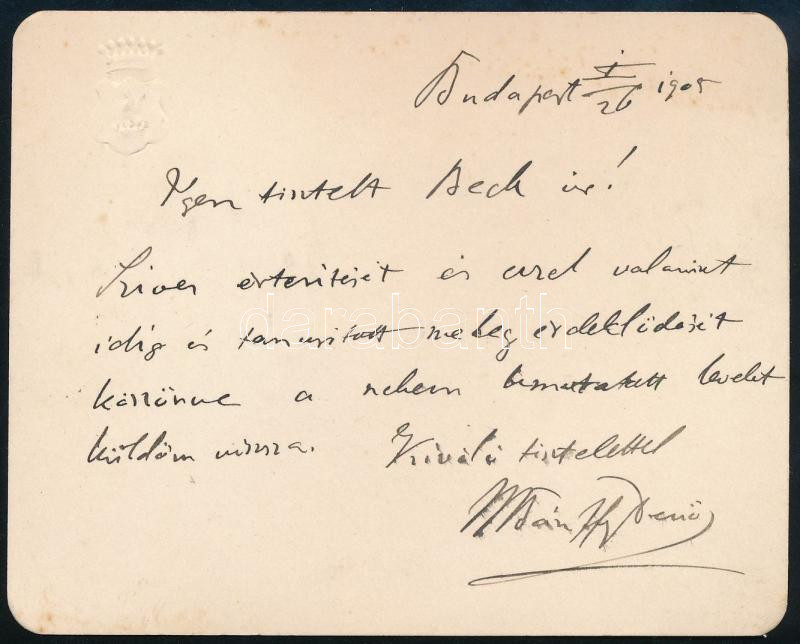 Budapest I/26 1905
Igen tisztelt Beck úr!
Szives értesítését és ezzel valamint
idáig is tanusított meleg érdeklődését
köszönve a nekem bemutatott levelet
küldöm vissza. Kiváló tisztelettel
Bánffy Dezső
darabanth